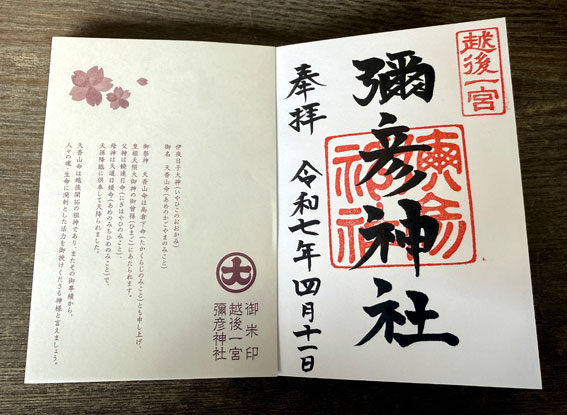 越後一宮
彌彦神社
奉拝
令和七年四月十一日
伊夜日子大神（いやひこのおおかみ）
御名　天香山命（あめのかごやまのみこと）
御祭神　天香山命は高倉下命（たかくらじのみこと）とも申し上げ、
皇祖天照大御神の御曾孫（ひまご）にあたられます。
父神は饒速日命（にぎはやひのみこと）、
母神は天道日媛命（あめのみちひめのみこと）で、
天孫降臨に供奉して天降られました。
天香山命は越後開拓の祖神であり、またその御事績から、
人々の魂、生命に溌剌とした活力を御授けくださる神様と言えましょう。
大
御朱印
越後一宮
彌彦神社